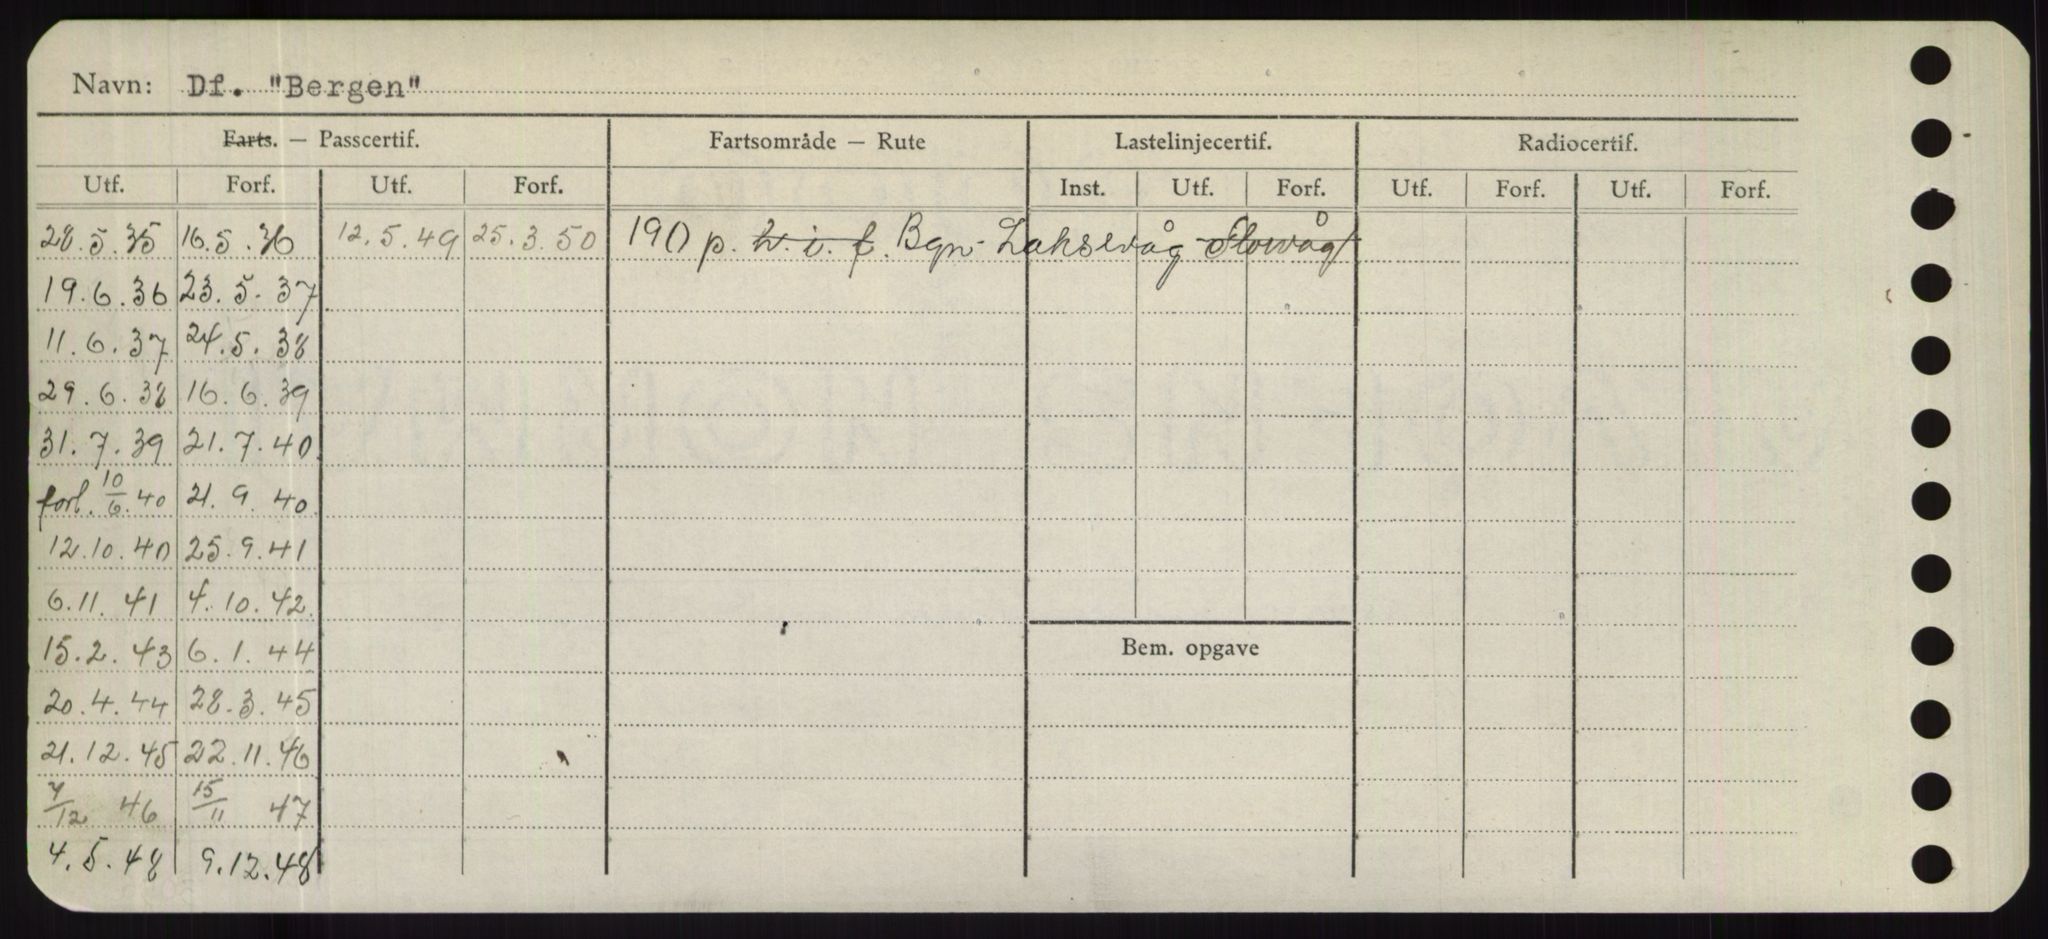 Navn: Df. "Bergen"
Farts. — Passcertif. Fartsområde — Rute Lastelinjecertif. Radiocertif.
Utf. Forf. Utf. Forf. Inst. Utf. Forf. Utf. Forf. Utf. Forf.
28.5.35 16.5.36 12.5.49 25.3.50 190 p. h. i. f. Bgn - Laksevåg
19.6.36 23.5.37
11.6.37 24.5.38
29.6.38 16.6.39
31.7.39 21.7.40
forl. 10/6.40 21.9.40
12.10.40 25.9.41
6.11.41 4.10.42
15.2.43 6.1.44
Bem. opgave
20.4.44 28.3.45
21.12.45 22.11.46
7/12 46 15/11 47
4.5.48 9.12.48